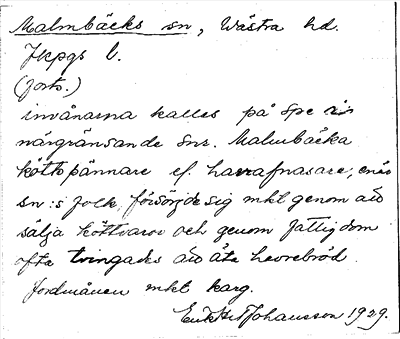 Malmbäcks sn, Wästra hd.
Jkpgs l.
(forts.)
invånarna kallas på spe av
närgränsande snr. Malmbäcka
köttapännare el. havrafnasare, enär
sn:s folk försörjde sig mkt genom att
sälja köttvaror och genom fattigdom
ofta tvingades att äta havrebröd.
Jordmånen mkt karg.
Johansson 1929.